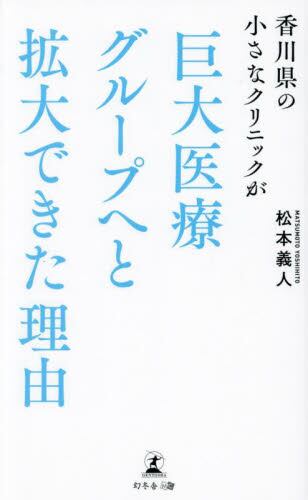 香川県の
小さなクリニックが
巨大医療
グループへと
拡大できた理由
松本義人
MATSUMOTO YOSHIHITO
GENTOSHA
幻冬舎